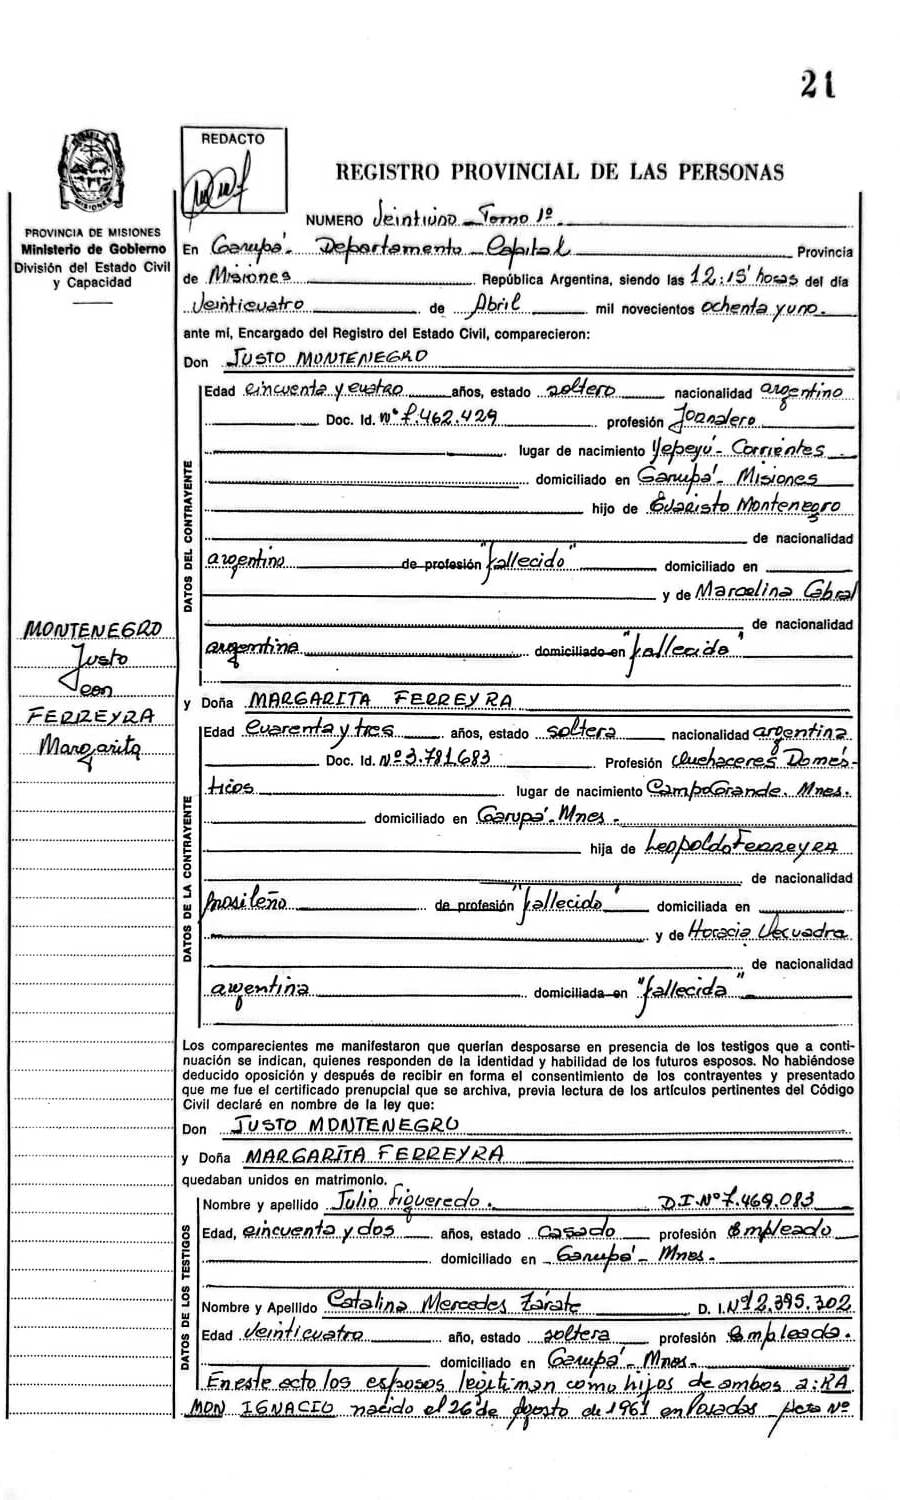 21
REDACTO
REGISTRO PROVINCIAL DE LAS PERSONAS
NUMERO Veintiuno - Tomo 1º
PROVINCIA DE MISIONES
Ministerio de Gobierno
División del Estado Civil
y Capacidad
En Garupá - Departamento Capital Provincia
de Misiones República Argentina, siendo las 12:15 horas del día
Veinticuatro de Abril mil novecientos ochenta y uno.
ante mí, Encargado del Registro del Estado Civil, comparecieron:
Don JUSTO MONTENEGRO
DATOS DEL CONTRAYENTE
Edad cincuenta y cuatro años, estado soltero nacionalidad argentino
Doc. Id. Nº 7.462.429 profesión Jornalero
lugar de nacimiento Yapeyú - Corrientes
domiciliado en Garupá - Misiones
hijo de Evaristo Montenegro
de nacionalidad
argentino de profesión "fallecido" domiciliado en
y de Marcelina Cabral
de nacionalidad
argentina domiciliado en "fallecida"
MONTENEGRO
Justo
con
FERREYRA
Margarita
y Doña MARGARITA FERREYRA
DATOS DE LA CONTRAYENTE
Edad cuarenta y tres años, estado soltera nacionalidad argentina
Doc. Id. Nº 3.781.683 Profesión Quehaceres Domés-
ticos lugar de nacimiento Campo Grande. Mnes.
domiciliado en Garupá - Mnes.
hija de Leopoldo FERREYRA
de nacionalidad
brasileño de profesión "fallecido" domiciliada en
y de Horacia
de nacionalidad
argentina domiciliada en "fallecida"
Los comparecientes me manifestaron que querían desposarse en presencia de los testigos que a conti-
nuación se indican, quienes responden de la identidad y habilidad de los futuros esposos. No habiéndose
deducido oposición y después de recibir en forma el consentimiento de los contrayentes y presentado
que me fue el certificado prenupcial que se archiva, previa lectura de los artículos pertinentes del Código
Civil declaré en nombre de la ley que:
Don JUSTO MONTENEGRO
y Doña MARGARITA FERREYRA
quedaban unidos en matrimonio.
DATOS DE LOS TESTIGOS
Nombre y apellido Julio Figueredo. D.I. Nº 7.469.083
Edad, cincuenta y dos años, estado Casado profesión Empleado
domiciliado en Garupá - Mnes.
Nombre y Apellido Catalina Mercedes Zárate D. I. Nº 12.395.302
Edad Veinticuatro año, estado soltera profesión Empleada.
domiciliado en Garupá - Mnes.
En este acto los esposos legitiman como hijos de ambos a: RA
MON IGNACIO nacido el 26 de Agosto de 1961 en Posadas Acta Nº